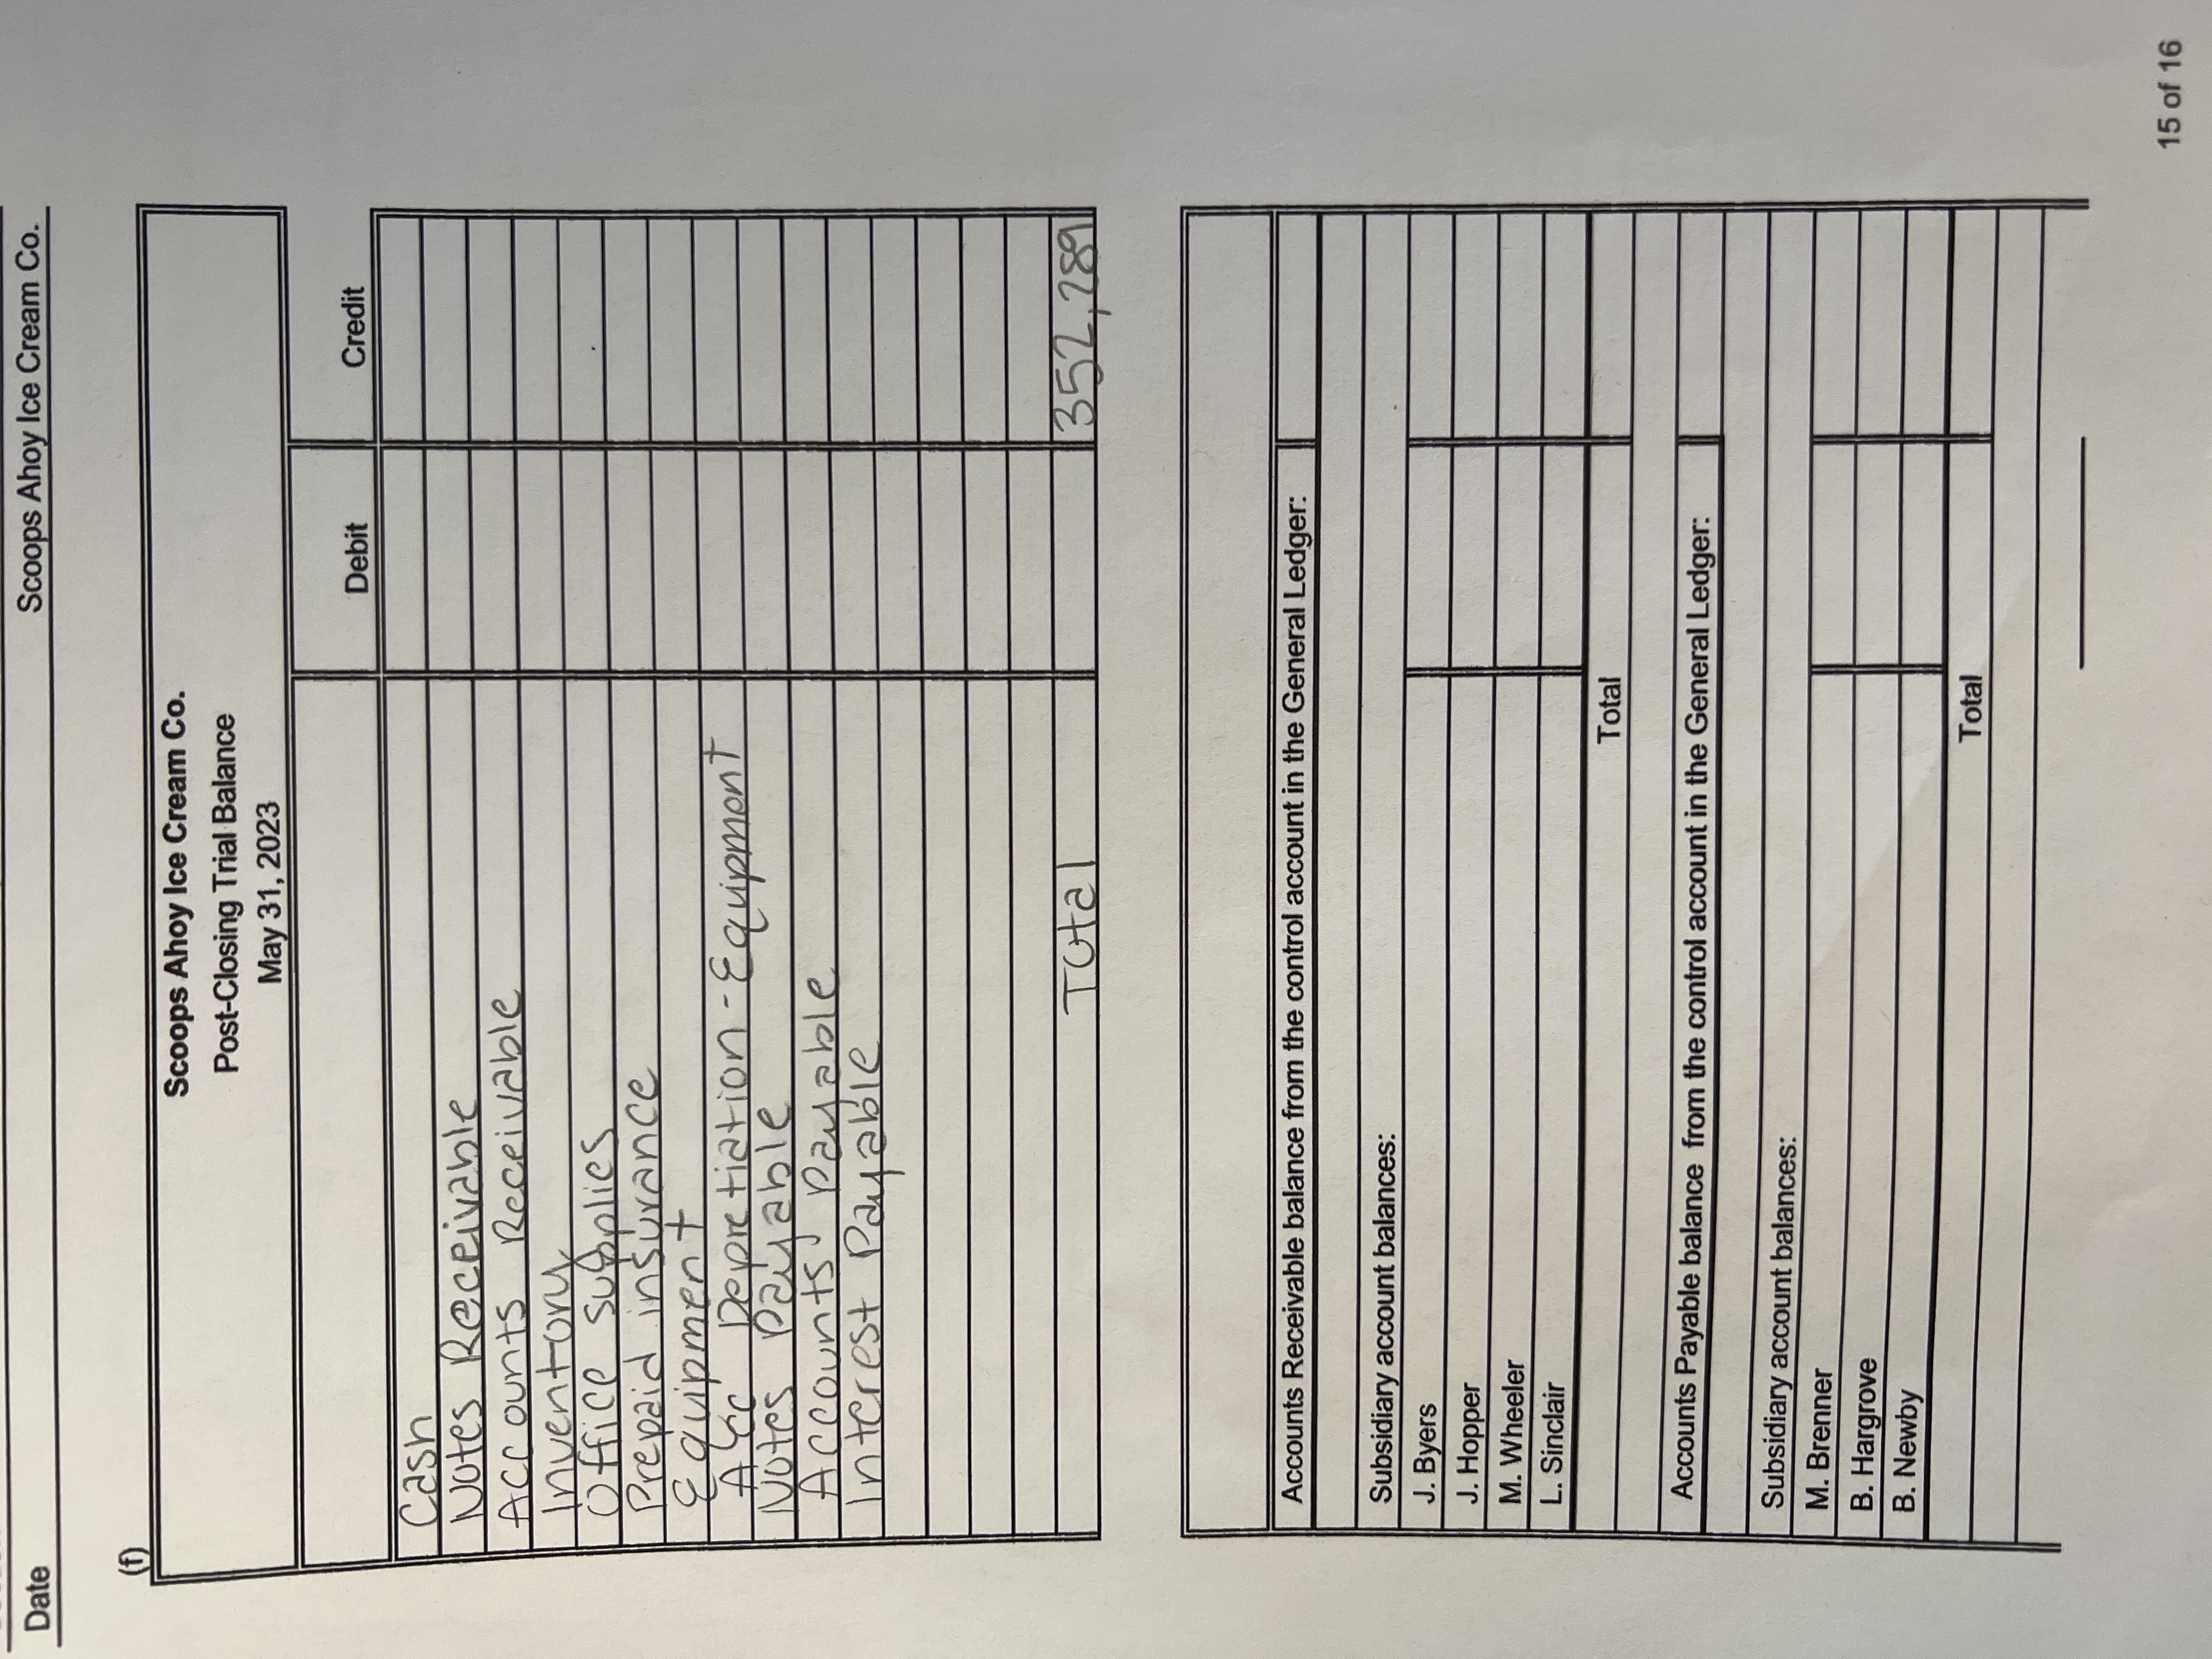 Date Scoops Ahoy Ice Cream Co.
(f)
Scoops Ahoy Ice Cream Co.
Post-Closing Trial Balance
May 31, 2023
Debit Credit
Cash
Notes Receivable
Accounts Receivable
Inventory
Office supplies
Prepaid insurance
Equipment
Acc Depretiation - Equipment
Notes Payable
Accounts Payable
Interest Payable
Total 352,289
Accounts Receivable balance from the control account in the General Ledger:
Subsidiary account balances:
J. Byers
J. Hopper
M. Wheeler
L. Sinclair
Total
Accounts Payable balance from the control account in the General Ledger:
Subsidiary account balances:
M. Brenner
B. Hargrove
B. Newby
Total
15 of 16